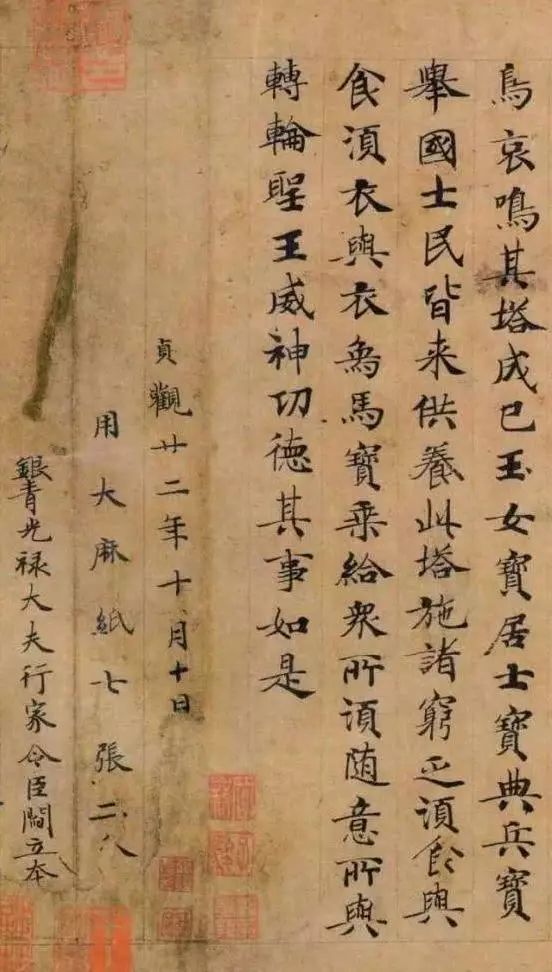 鳥哀鳴其塔成已玉女寶居士寶典兵寶
舉國士民皆来供養此塔施諸窮乏須飯與
食須衣與衣象馬寶乗給衆所須随意所與
轉輪聖王威神功德其事如是
貞觀廿二年十月十日
用大麻紙七張二分
銀青光禄大夫行家令臣閻立本